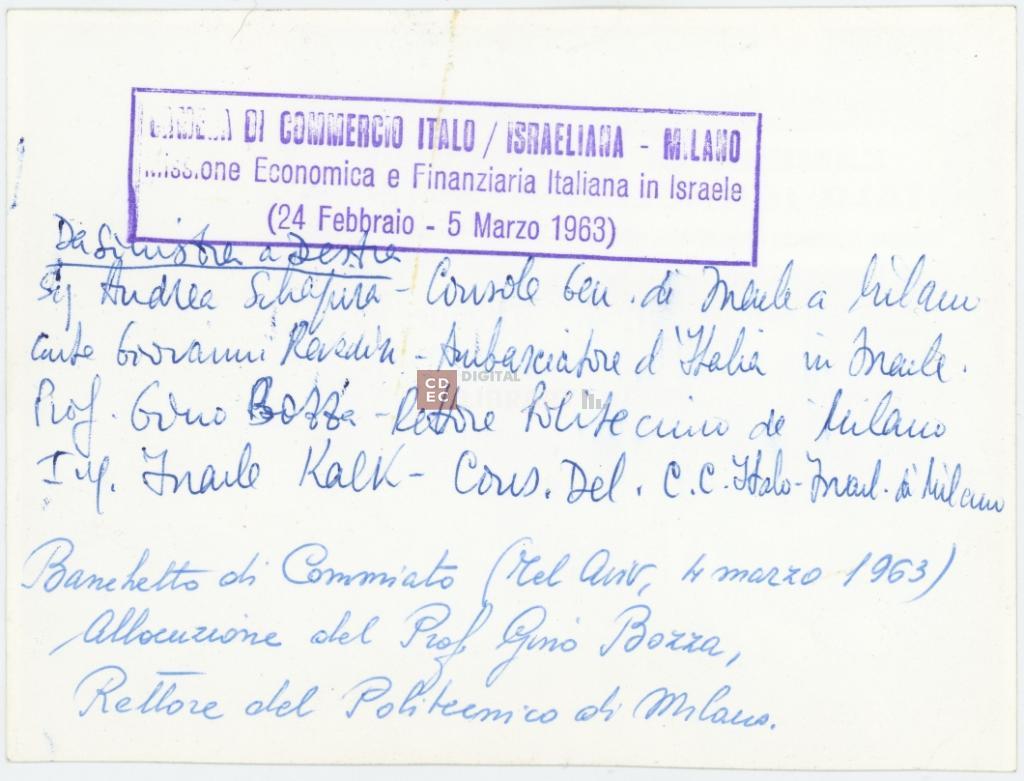 CAMERA DI COMMERCIO ITALO / ISRAELIANA - MILANO
Missione Economica e Finanziaria Italiana in Israele
(24 Febbraio - 5 Marzo 1963)
Da Sinistra a Destra
Sig Andrea Schapira - Console Gen. di Israele a Milano
Giovanni Revedin - Ambasciatore d'Italia in Israele.
Prof. Gino Bozza - Rettore Politecnico di Milano
Ing. Israele Kalk - Cons. Del. C.C. Italo-Israel. di Milano
CDEC DIGITAL
Banchetto di Commiato (Tel Aviv, 4 marzo 1963)
Allocuzione del Prof Gino Bozza,
Rettore del Politecnico di Milano.